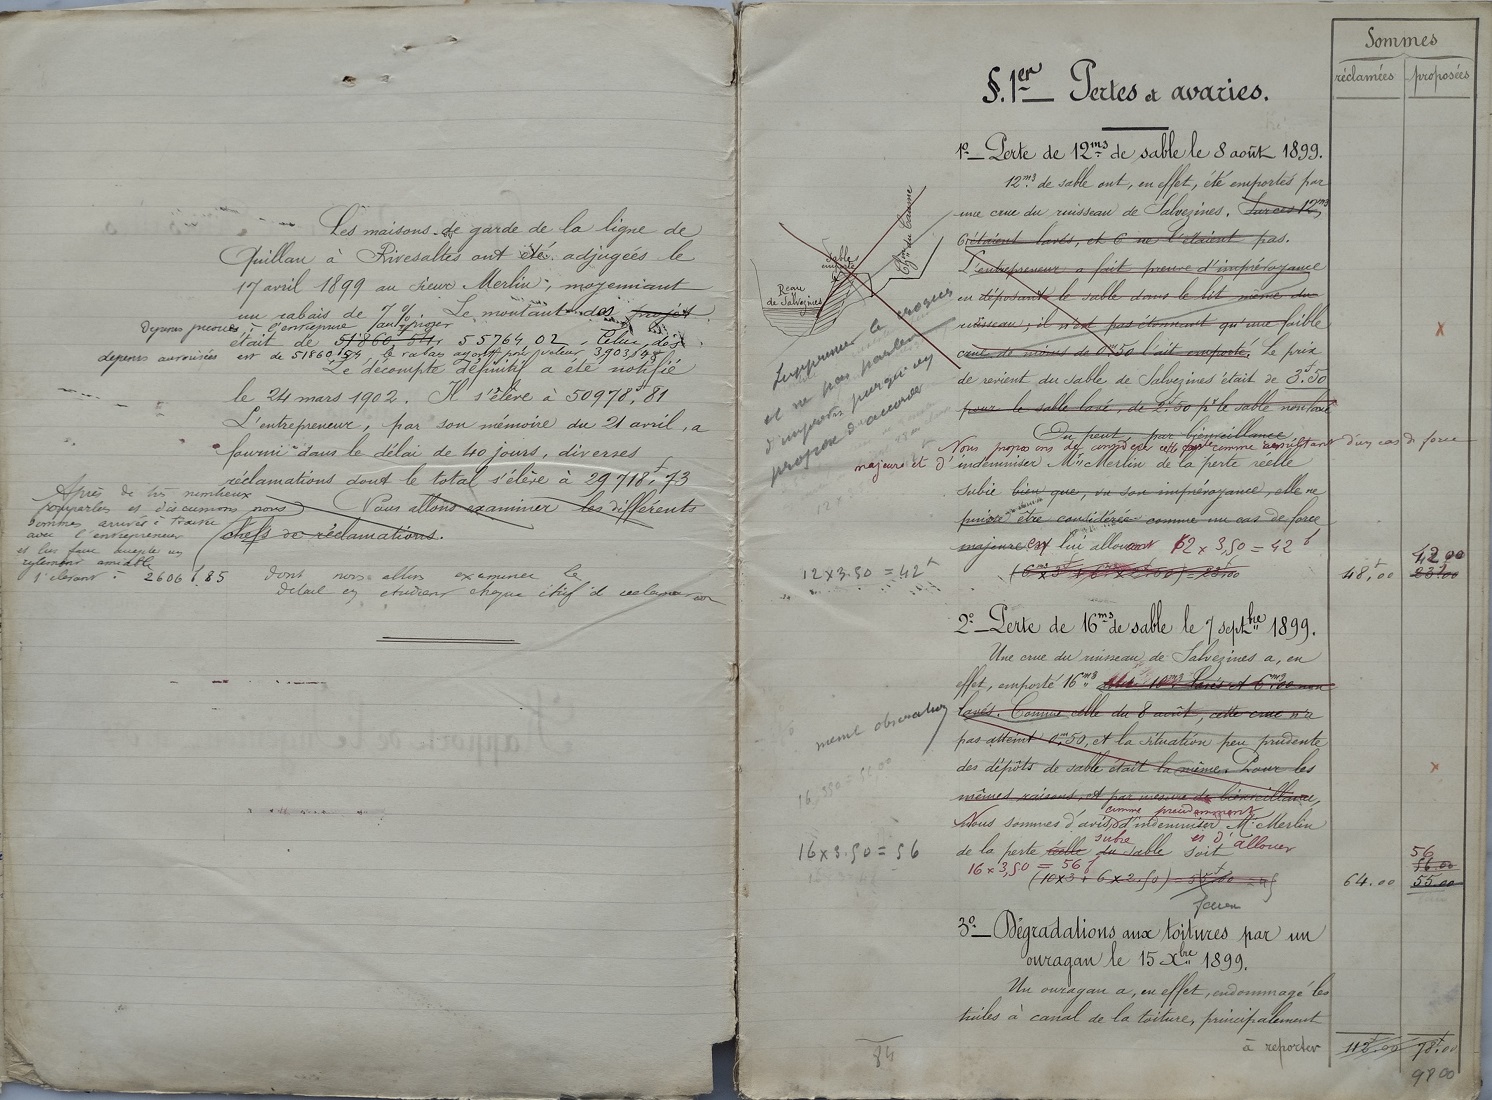 Les maisons de garde de la ligne de
Quillan à Rivesaltes ont été adjugées le
17 avril 1899 au sieur Merlin, moyennant
un rabais de 7 %. Le montant des projet
dépenses prévues à l'entreprise
était de 51860,54 55764,02. Celui des
dépenses autorisées est de 51860,54, le rabais ayant pour valeur 3903,48
Le décompte définitif a été notifié
le 24 mars 1902. Il s'élève à 50978f,81
L'entrepreneur, par son mémoire du 21 avril, a
fourni dans le délai de 40 jours, diverses
réclamations dont le total s'élève à 29718f,73
Nous allons examiner les différents
chefs de réclamations.
Après de très nombreux
pourparlers et discussions nous
sommes arrivés à
avec l'entrepreneur
et lui faire accepter un
règlement amiable
s'élevant à 2606f,85 dont nous allons examiner le
détail en étudiant chaque chef de réclamation
§.1er Pertes et avaries.
Sommes
réclamées proposées
1º_ Perte de 12m3 de sable le 8 août 1899.
12m3 de sable ont, en effet, été emportés par
une crue du ruisseau de Salvezines. Sur ces 12m3,
6 étaient lavés, et 6 ne l'étaient pas.
L'entrepreneur a fait preuve d'imprévoyance
en déposant le sable dans le lit même du
ruisseau; il n'est pas étonnant qu'une faible
crue de moins de 0m50 l'ait emporté. Le prix
de revient du sable de Salvezines était de 3f.50
pour le sable lavé, de 2f.50 pr le sable non lavé
On peut, par bienveillance
Nous proposons de considérer cette perte comme résultant d'un cas de force
majeure et d'indemniser Mr Merlin de la perte réelle
subie bien que, vu son imprévoyance, elle ne
puisse être considérée comme un cas de force
majeure en lui allouant 12 x 3,50 = 42f
48f,00
42 00
Sable
Reau
de Salvezines
Supprimer le croquis
et ne pas parler
d'imprévoyance puisqu'on
propose d'accorder
12 x 3.50 = 42f
2º_ Perte de 16m3 de sable le 7 septbre 1899.
Une crue du ruisseau de Salvezines a, en
effet, emporté 16m3 dont 10m3 lavés et 6m3,00 non
lavés. Comme celle du 8 août, cette crue n'a
pas atteint 0m,50, et la situation peu prudente
des dépôts de sable était la même. Pour les
mêmes raisons, et par mesure de bienveillance,
comme précédemment
Nous sommes d'avis d'indemniser Mr Merlin
subie et d'allouer
de la perte réelle du sable soit
16 x 3,50 = 56f
(10x3 + 6 x 2.50) = 55f00
64.00
56
55.00
même observation
16 x 3.50 = 56
3º_ Dégradations aux toitures par un
ouragan le 15 Xbre 1899.
Un ouragan a, en effet, endommagé les
tuiles à canal de la toiture, principalement
à reporter 112f.00 78f.00
98 00
84